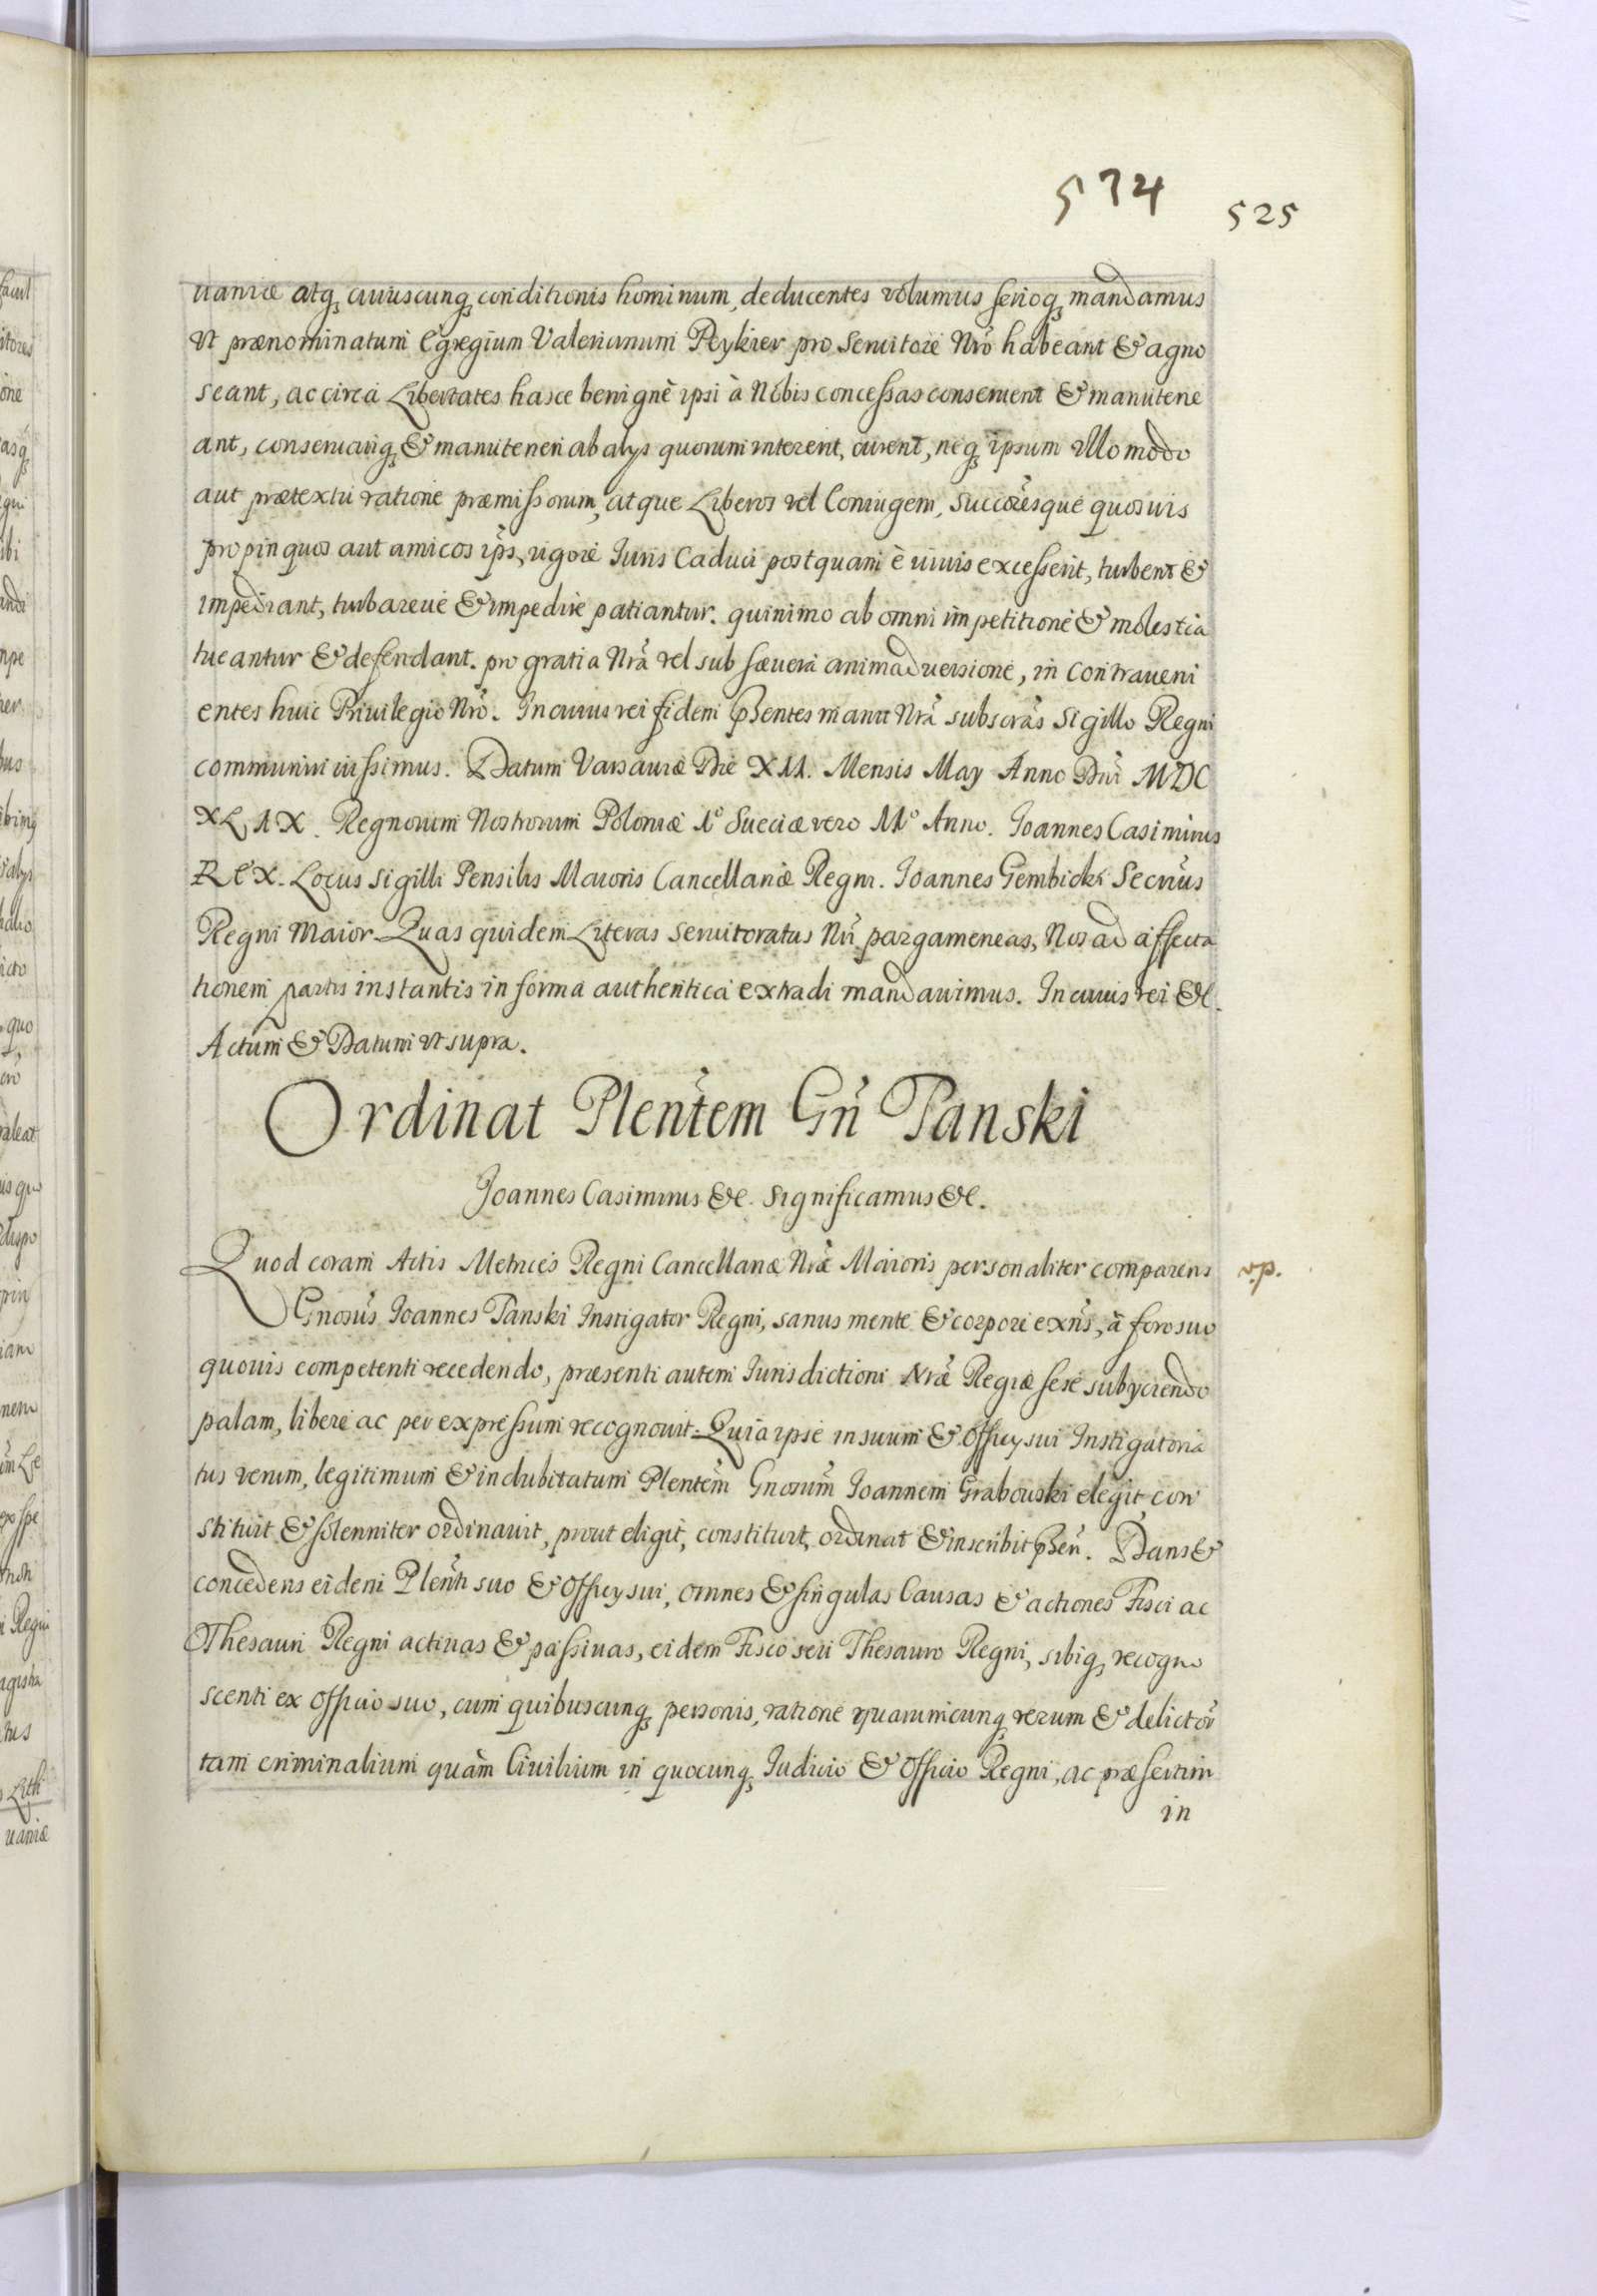 574 525
uaniæ atq₃ cuiuscunq₃ conditionis hominum, deducentes volumus serioq₃ mandamus
Vt prænominatum Egregium Valerianum Peykier pro Seruitore Nrõ habeant & agno
scant, ac circa Libertates hasce benignè ipsi à Nobis concessas conseruent & manutene
ant, conseruariq₃ & manuteneri ab alys quorum intererit, curent, neq₃ ipsum ullo modo
aut prætextu ratione præmissorum, atque Liberos vel Coniugem, Succõresque quosuis
propinquos aut amicos ip̃s, rigore Iuris Caduci postquam è viuis excesserit, turbent &
impediant, turbareue & impedire patiantur. quinimo ab omni impetitione & molestia
tueantur & defendant. pro gratia Nrã vel sub sæuera animaduersione, in Contraueni
entes huic Priuilegio Nrõ. In cuius rei fidem p̃sentes manu Nrã subscrãs Sigillo Regni
communiri iussimus. Datum Varsauiæ Die XII. Mensis May Anno Dnĩ MDC
XLIX. Regnorum Nostrorum Poloniæ 1º Sueciæ vero 11º Anno. Joannes Casimirus
REX. Locus Sigilli Pensilis Maioris Cancellariæ Regni. Joannes Gembicki Secriũs
Regni Maior Quas quidem Literas Seruitoratus Nrĩ pargameneas, Nos ad affecta
tionem partis instantis in forma authentica extradi mandauimus. In cuius rei &c.
Actum & Datum vt supra.
Ordinat Plenẽtem Gñ Tanski
Joannes Casimirus &c. Significamus &c.
Quod coram Actis Metrices Regni Cancellariæ Nræ̃ Maioris personaliter comparens v.p.
Gnosũs Joannes Tanski Instigator Regni, sanus mente & corpore exñs, à foro suo
quouis competenti recedendo, præsenti autem Iurisdictioni Nræ̃ Regiæ sese subyciendo
palam, libere ac per expressum recognouit. Quia ipse in suum & Officy sui Instigatoria
tus verum, legitimum & indubitatum Plentẽm Gnosum̃ Joannem Grabouski elegit con
stituit & solenniter ordinauit, prout eligit, constituit, ordinat & inscribit p̃señ. Dans &
concedens eidem Plenti̾ suo & Officy sui, omnes & singulas Causas & actiones Fisci ac
Thesauri Regni actiuas & passiuas, eidem Fisco seu Thesauro Regni, sibiq₃ recogno
scenti ex Officio suo, cum quibuscunq₃ personis, ratione quarumcunq₃ rerum & delictor̃
tam criminalium quàm Ciuilium in quocunq₃ Iudicio & Officio Regni, ac præsertim
in